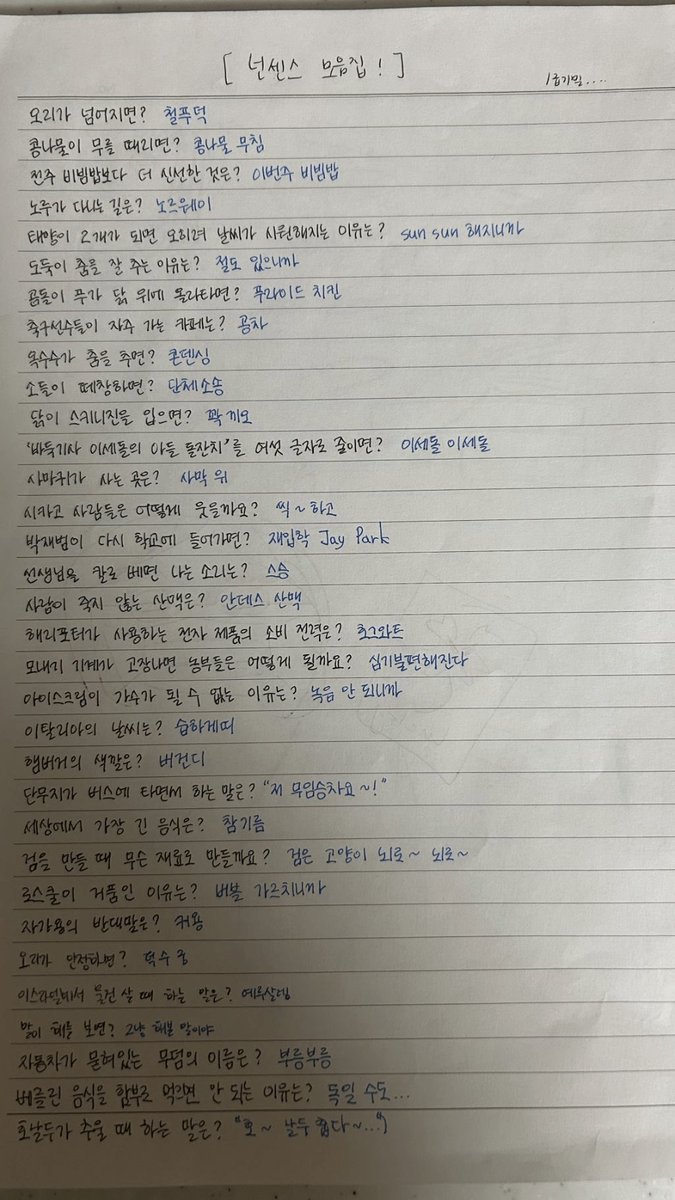 [ 넌센스 모음집! ]
1급기밀....
오리가 넘어지면? 철푸덕
콩나물이 무를 때리면? 콩나물 무침
전주 비빔밥보다 더 신선한 것은? 이번주 비빔밥
노루가 다니는 길은? 노르웨이
태양이 2개가 되면 오히려 날씨가 시원해지는 이유는? sun sun 해지니까
도둑이 춤을 잘 추는 이유는? 절도 있으니까
곰돌이 푸가 닭 위에 올라타면? 푸라이드 치킨
축구선수들이 자주 가는 카페는? 공차
옥수수가 춤을 추면? 콘덴싱
소들이 떼창하면? 단체소송
닭이 스키니진을 입으면? 꽉 끼오
'바둑기사 이세돌의 아들 돌잔치'를 여섯 글자로 줄이면? 이세돌 이세돌
사마귀가 사는 곳은? 사막 위
시카고 사람들은 어떻게 웃을까요? 씩~하고
박재범이 다시 학교에 들어가면? 재입학 Jay Park
선생님을 칼로 베면 나는 소리는? 스승
사람이 죽지 않는 산맥은? 안데스 산맥
해리포터가 사용하는 전자 제품의 소비 전력은? 호그와트
모내기 기계가 고장나면 농부들은 어떻게 될까요? 심기불편해진다
아이스크림이 가수가 될 수 없는 이유는? 녹음 안 되니까
이탈리아의 날씨는? 습하게띠
햄버거의 색깔은? 버건디
단무지가 버스에 타면서 하는 말은? "저 무임승차요~!"
세상에서 가장 긴 음식은? 참기름
검을 만들 때 무슨 재료로 만들까요? 검은 고양이 뇌로~ 뇌로~
로스쿨이 거품인 이유는? 버블 가르치니까
자가용의 반대말은? 커용
오리가 안정하면? 덕수궁
이스라엘에서 물건 살 때 하는 말은? 예루살렘
말이 해를 보면? 그냥 해본 말이야
자동차가 묻혀있는 무덤의 이름은? 부릉부릉
베를린 음식을 함부로 먹으면 안 되는 이유는? 독일 수도...
호날두가 추울 때 하는 말은? "호~ 날두 춥다~..."